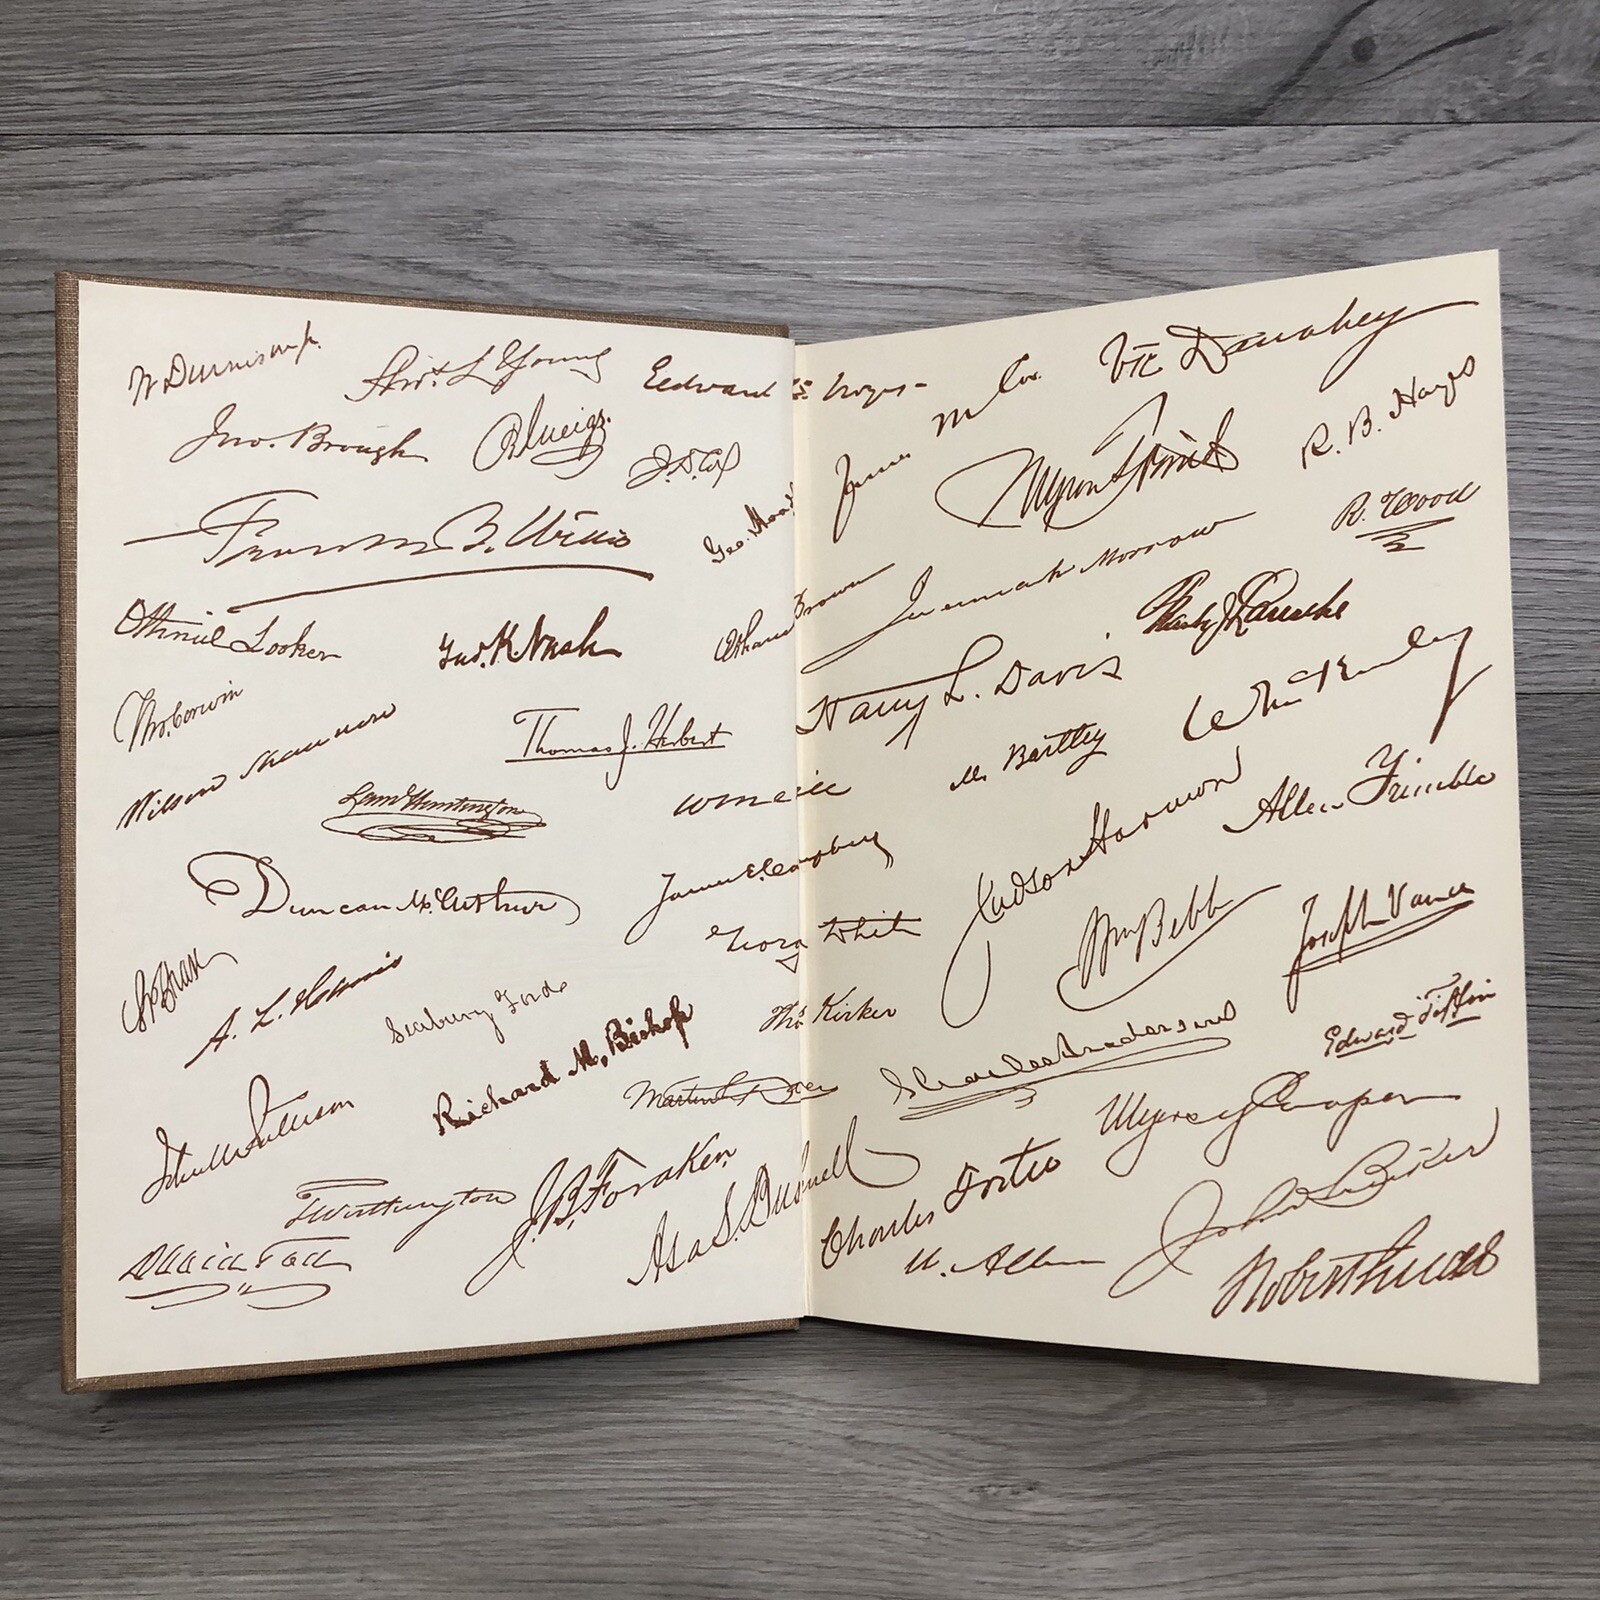 W Dennison Jr.
Thos. L Young
Edward F. Noyes
Jno. Brough
J. D. Cox
Geo. Hoadly
Frank B. Willis
Othniel Looker
Geo. K Nash
Ethan A Brown
Thos. Corwin
Wilson Shannon
Thomas J. Herbert
Saml Huntington
Duncan McArthur
James E. Campbell
George White
A. L. Harris
Seabury Ford
Richard M. Bishop
Thos Kirker
Martin L Davey
T Worthington
J. B. Foraker.
Asa S. Bushnell
David Tod
Vic Donahey
James M Cox
Myron T Herrick
R. B. Hayes
R. Wood
Jeremiah Morrow
Frank J Lausche
Harry L. Davis
M. Bartley
Wm McKinley
Judson Harmon
Allen Trimble
Wm Bebb
Joseph Vance
Charles Anderson
Edward Tiffin
Myers Y Cooper
Charles Foster
W. Allen
John W Bricker
Robert Lucas